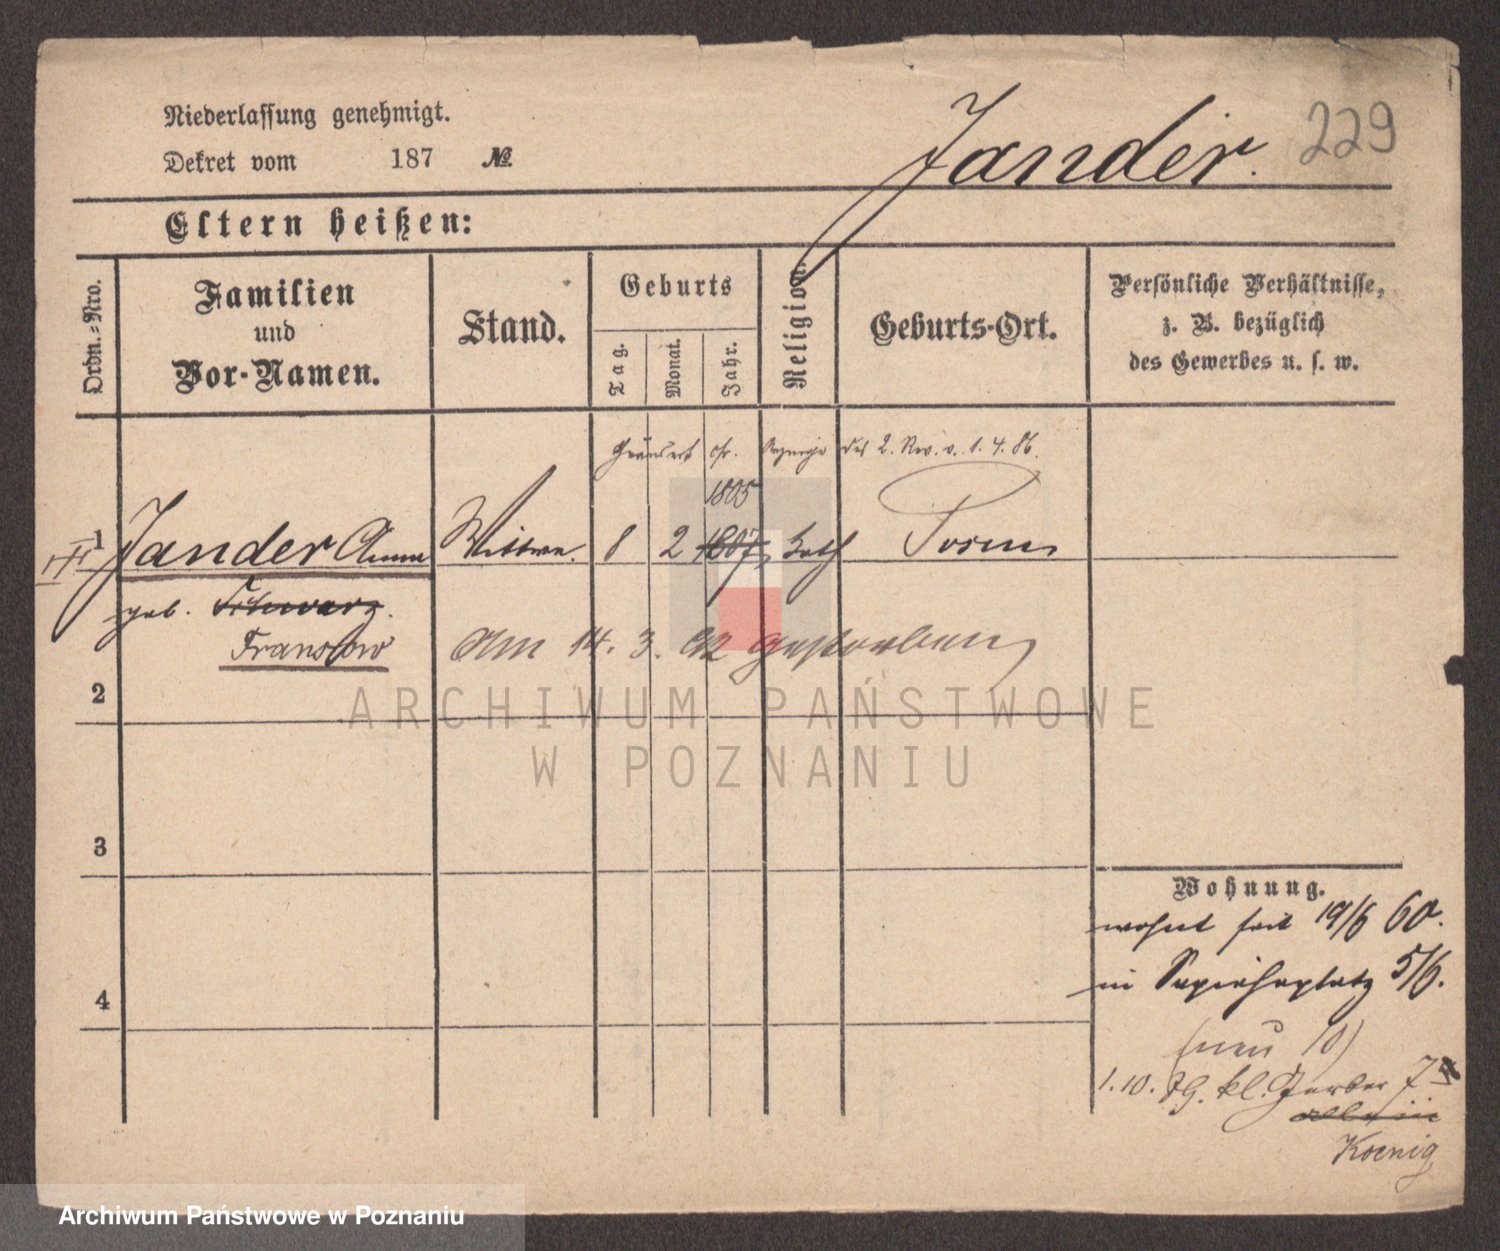 Niederlassung genehmigt.
Dekret vom 187 №
Jander. 229
Eltern heißen:
Ordn.-Nro.
Familien
und
Vor-Namen.
Stand.
Geburts
Tag.
Monat.
Jahr.
Religion.
Geburts-Ort.
Persönliche Verhältnisse,
z. B. bezüglich
des Gewerbes u. s. w.
Geändert cfr. Anzeige des 2. Rev. v. 1. 4. 86.
1805
1 Jander Anna Wittwe. 8 2 1807 kath Posen
geb. Schwarz.
Franskow am 14. 3. 92 gestorben
2
3
4
Wohnung.
wohnt seit 19/6 60.
in Sapiehaplatz 5/6.
(neu 10)
1. 10. kl. Gerber 7
Koenig
ARCHIWUM PAŃSTWOWE
W POZNANIU
Archiwum Państwowe w Poznaniu